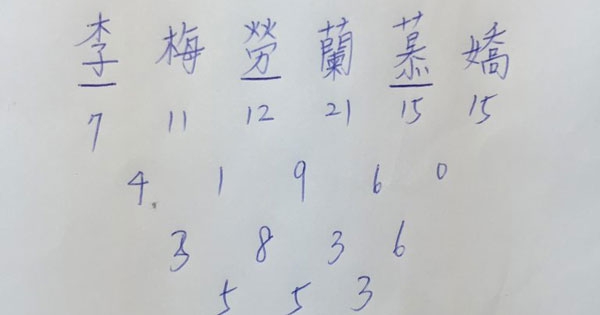 李 梅 勞 蘭 慕 嬌
7 11 12 21 15 15
4 1 9 6 0
3 8 3 6
5 5 3